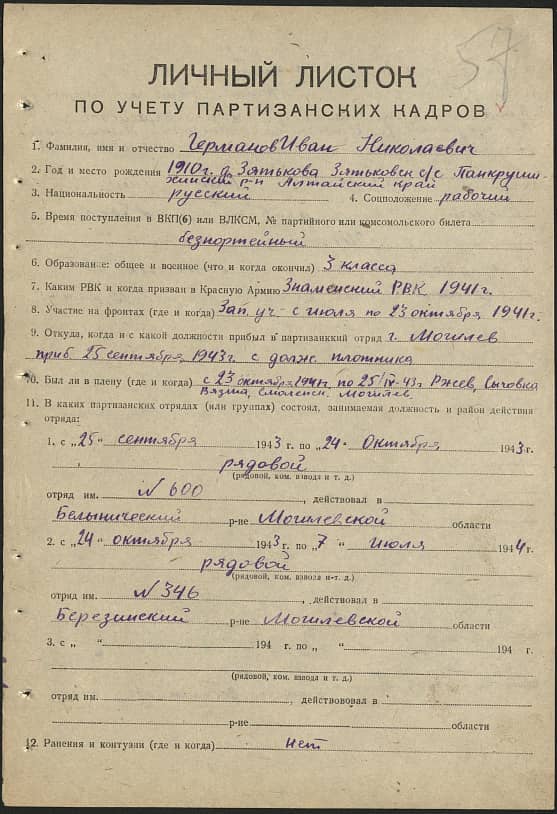 57
ЛИЧНЫЙ ЛИСТОК
ПО УЧЕТУ ПАРТИЗАНСКИХ КАДРОВ
1. Фамилия, имя и отчество Германов Иван Николаевич
2. Год и место рождения 1910 г. д. Зятькова Зятьковск с/с Панкруши-
хинский р-н Алтайский край
3. Национальность русский 4. Соцположение рабочий
5. Время поступления в ВКП(б) или ВЛКСМ, № партийного или комсомольского билета
безпортейный
6. Образование: общее и военное (что и когда окончил) 3 класса
7. Каким РВК и когда призван в Красную Армию Знаменский РВК 1941 г.
8. Участие на фронтах (где и когда) Зап. уч. с июля по 23 октября 1941 г.
9. Откуда, когда и с какой должности прибыл в партизанкий отряд г. Могилев
приб 25 сентября 1943 г. с долж плотника
10. Был ли в плену (где и когда) с 23 октября 1941 г. по 25/IX-43 г. Ржев, Сычовка
Вязма, Смоленск. Могилев
11. В каких партизанских отрядах (или группах) состоял, занимаемая должность и район действия
отряда:
1. с „25“ сентября 1943 г. по „24“ Октября 1943 г.
рядовой
(рядовой, ком. взвода и т. д.)
отряд им. № 600, действовал в
Белынический р-не Могилевской области
2. с „24“ октября 1943 г. по „7“ июля 1944 г.
рядовой
(рядовой, ком. взвода и т. д.)
отряд им. № 346, действовал в
Березинский р-не Могилевской области
3. с „ “ 194 г. по „ “ 194 г.
(рядовой, ком. взвода и т. д.)
отряд им. , действововал в
р-не области
12. Ранения и контузии (где и когда) нет